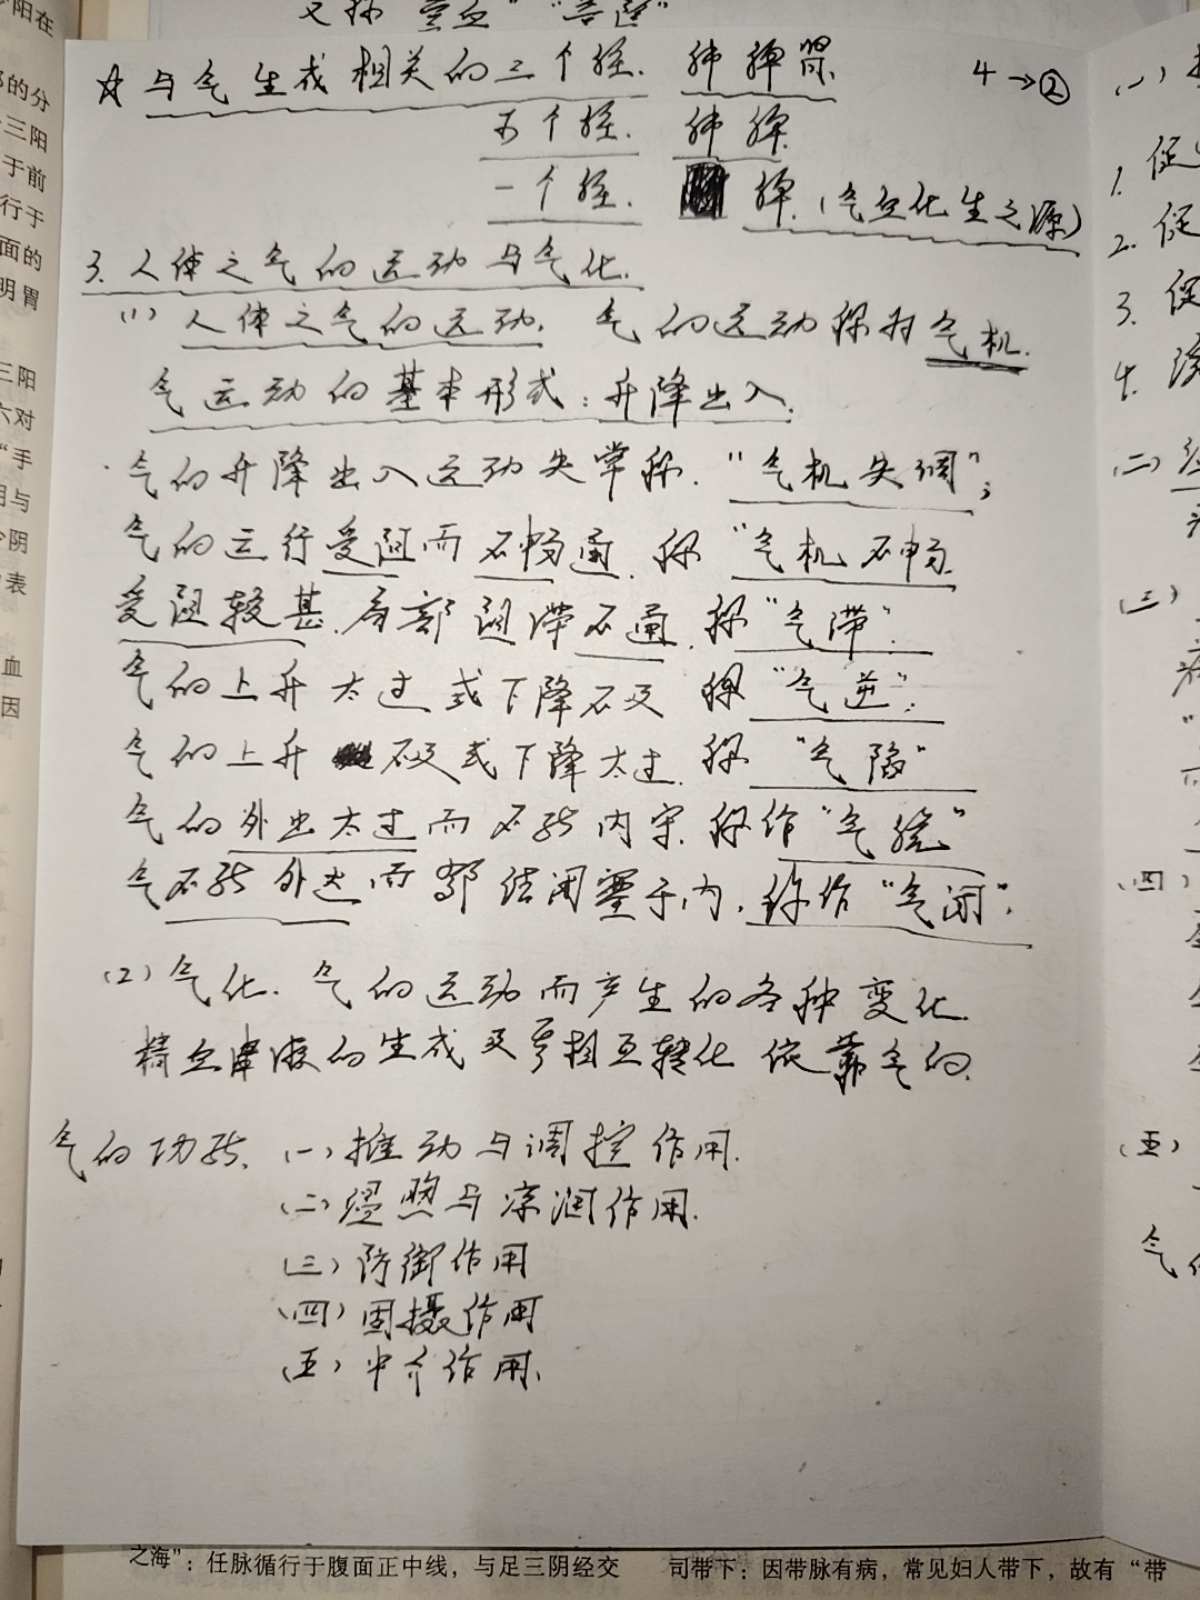 又称“营血”“营阴”
☆与气生成相关的三个经. 肺脾肾. 4→②
两个经. 肺脾.
一个经. 脾.(气血化生之源)
3.人体之气的运动与气化.
(1)人体之气的运动. 气的运动称为气机.
气运动的基本形式:升降出入.
·气的升降出入运动失常称.“气机失调”;
气的运行受阻而不畅通.称“气机不畅.
受阻较甚.局部阻滞不通.称“气滞”.
气的上升太过或下降不及 称“气逆”;
气的上升不及或下降太过.称“气陷”
气的外出太过而不能内守.称作“气脱”
气不能外达而郁结闭塞于内,称作“气闭”.
(2)气化. 气的运动而产生的各种变化.
精血津液的生成及其相互转化依靠气的.
气的功能. (一)推动与调控作用.
(二)温煦与凉润作用.
(三)防御作用
(四)固摄作用
(五)中介作用.
阳在
的分
三阳
于前
行于
面的
明胃
三阳
六对
“手
阴与
阴
表
血
因
(一)
1.促
2.促
3.促
4.
(二)
(三)
(四)
(五)
气
之海”:任脉循行于腹面正中线,与足三阴经交
司带下:因带脉有病,常见妇人带下,故有“带